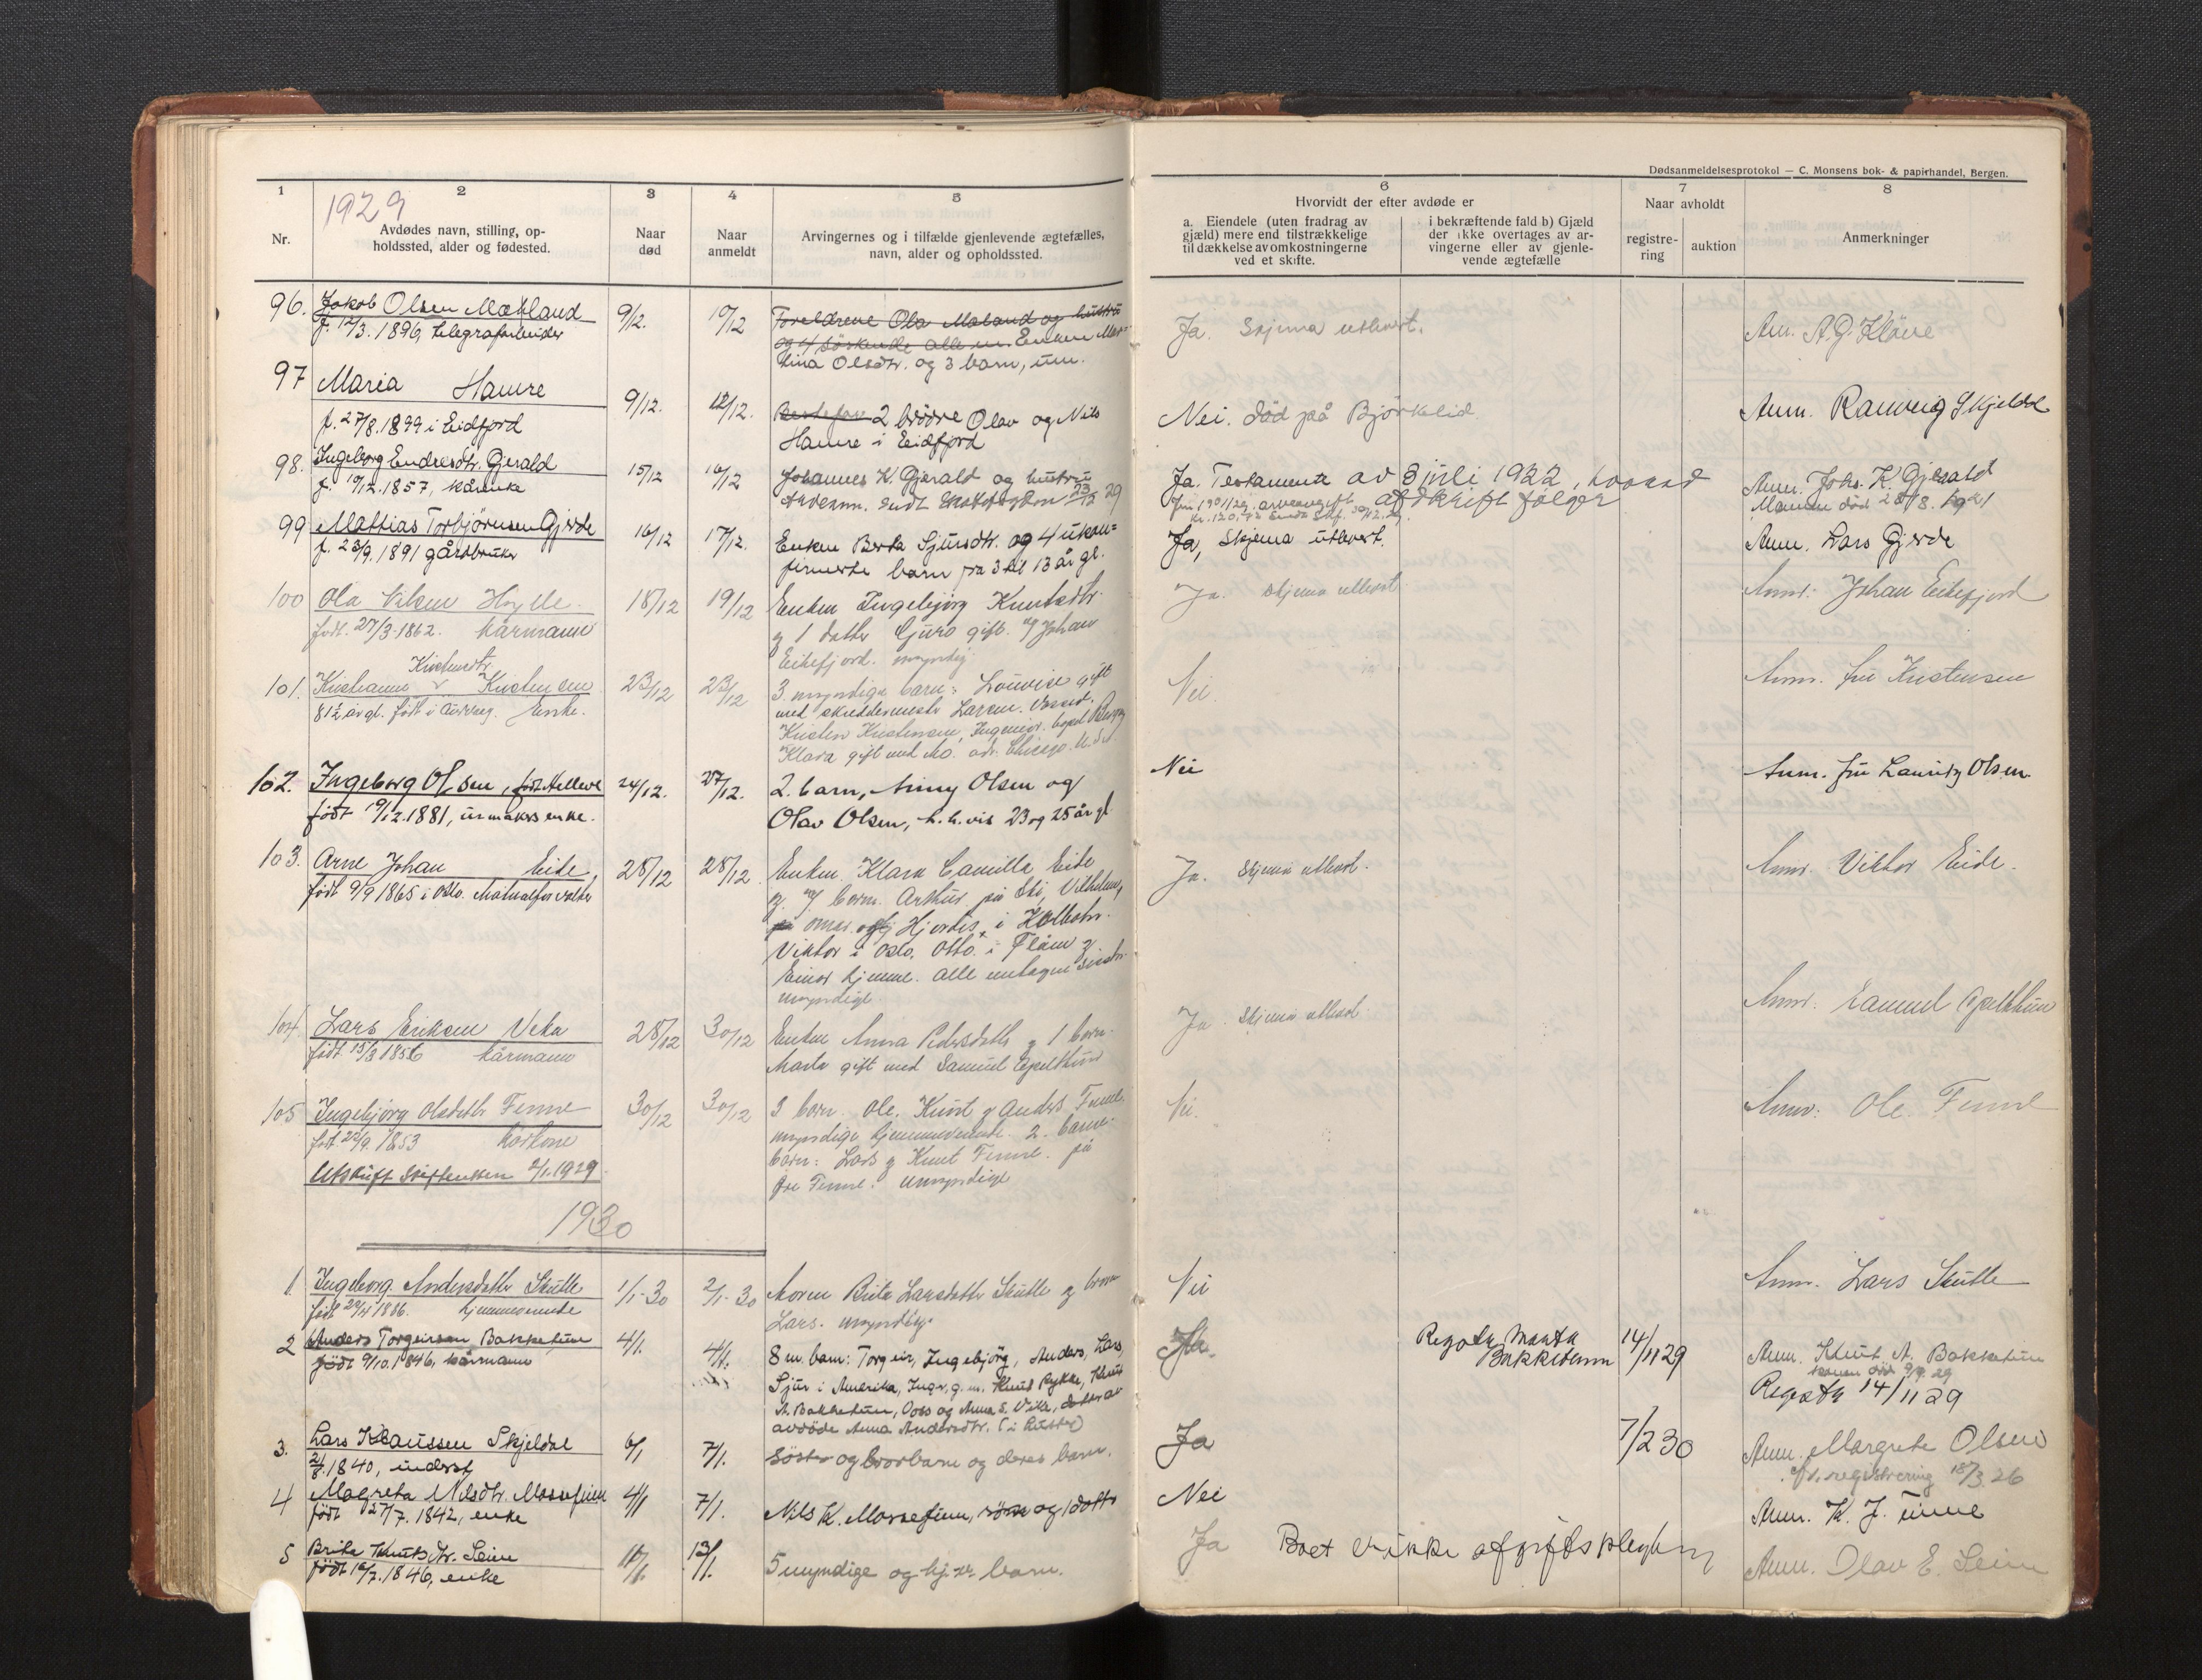 Dødsanmeldelsesprotokol — C. Monsens bok- & papirhandel, Bergen.
1 2 3 4 5 6 7 8
1929
Nr.
Avdødes navn, stilling, op-
holdssted, alder og fødested.
Naar
død
Naar
anmeldt
Arvingernes og i tilfælde gjenlevende ægtefælles,
navn, alder og opholdssted.
Hvorvidt der efter avdøde er
a. Eiendele (uten fradrag av
gjæld) mere end tilstrækkelige
til dækkelse av omkostningerne
ved et skifte.
i bekræftende fald b) Gjæld
der ikke overtages av ar-
vingerne eller av gjenle-
vende ægtefælle
Naar avholdt
registre-
ring
auktion
Anmerkninger
96. Jakob Olsen Mækland 9/12. 10/12 Foreldrene Ola Maland og hustru
f. 12/3. 1896 telegrafarbeider og 4 søskende alle m. Enken
Olsdtr. og 3 barn, um.
Ja. Skjema utlevert. Anm. A.G. Kløve
97 Maria Hamre 9/12. 12/12. 2 brødre Olav og Nils
f. 27/8. 1899 i Eidfjord Hamre i Eidfjord
Nei. død på Bjørkelid. Anm. Ranveig Skjeldal
98. Ingeborg Endresdtr. Gjerald 15/12 16/12 Johannes K. Gjerald og hustru
f. 19/12. 1857, kårenke
Ja. Testamente av 3 juli 1922, hvorav
afskrift følger
Anm. Johs. K. Gjerald
99 Mattias Torbjørnsen Gjerde 16/12 17/12. Enken Berta Sjursdtr. og 4 ukon=
f. 23/9. 1891 gårdbruker firmerte barn fra 3 til 13 år gl.
Ja, Skjema utlevert. Anm. Lars Gjerde
100 Ola Nilsen Hylle 18/12 19/12 Enken Ingebjørg Knutsdtr.
født. 27/3-1862. kårmann og 1 datter Guro gift m/ Johan
Eikefjord. myndig
Ja. Skjema utlevert. Anm: Johan Eikefjord
101. Kristensen 23/12 23/12 3 myndige barn: Lovise gift
81½ år gl. født i Enke. med skreddermester Larsen. Voss.
Kristen Kristensen, Ingeniør, Bergen
Klara gift med Mo. adr. Chicago. U.S.A.
Nei. Anm. fru Kristensen
102. Ingeborg Olsen, født Helleve 24/12. 27/12. 2. barn, Anny Olsen og
født 19/12. 1881, urmakers enke. Olav Olsen, h.h.vis 23 og 25 år gl
Nei Anm. fru Lauritz Olsen
103. Arne Johan Eide, 28/12 28/12 Enken Klara Camilla Eide
født 9/9 1865 i Oslo. Materialforvalter og 7 barn. Arthur på Ski, Vilhelm,
Hjørdis, i Kolbotn.
Viktor i Oslo, Otto i Flåm og
Einar hjemme. alle untagen sidstn.
myndige
Ja. Skjema utlevert. Anm. Viktor Eide.
104. Lars Eriksen Veka 28/12 30/12 Enken Anna Pedersdatter og 1 barn.
født 15/3 1856 kårmann Marta gift med Samuel Opelthun
Ja. Skjema utlevert. Anm. Samuel Opelthun
105 Ingebjørg Olsdatter Fenne 30/12 30/12 3 barn. Ole, Knut og Anders Fenne.
født 22/9. 1853 kårkone myndige hjemmeværende. 2. barne-
barn: Lars og Knut Fenne. på
Øvre Fenne. umyndige
Nei. Anm: Ole Fenne
Utskrift Skifterretten 2/1.1929.
1930
1 Ingeborg Andersdatter Skutle 1/1-30 2/1-30 Moren Brita Larsdatter Skutle og bror
1886. hjemmeværende Lars. myndig.
Nei Anm. Lars Skutle
2 Anders Torgeirsen Bakketun 4/1. 4/1. 8 m. barn: Torgeir, Ingebjørg, Anders, Lars,
født 9/10. 1846, kårmann Sjur i Amerika, Ingv. g. m. Knut Rykke, Knut
A. Bakketun, Voss og Anna S. Vike, datter av
avdøde Anna Andersdtr.
Ja. Regstr. Marta
Bakketunn 14/11 29 Anm. Knut A. Bakketun
konen død 9/9. 29
Regstr 14/11 29
3. Lars Klaussen Skjeldal 6/1 7/1. Søster og brorbarn og deres barn.
2/8. 1840, inderst
Ja 7/2 30 Anm. Margrete Olsen
registrering 18/3 26
4 Magreta Nilsdtr. Mossefinn 4/1 7/1. Nils K. Mossefinn, sønn og 1 datter
født 27/7. 1842, enke
Nei Anm. K. J. Finne
5 Brita Knutsdtr. Seim 11/1. 13/1. 5 myndige og hj.v. barn.
født 12/7. 1846, enke
Ja Boet er ikke afgiftspliktig Anm. Olav E. Seim